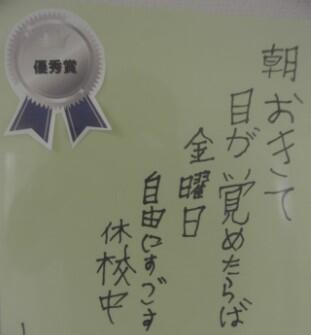 優秀賞
朝おきて
目が覚めたらば
金曜日
自由にすごす
休校中